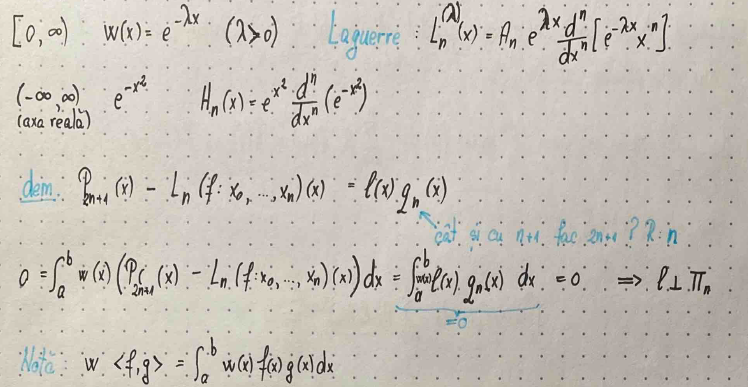 [0, ∞) w(x) = e^{-λx} (λ>0) Laguerre : L_n^{(λ)}(x) = A_n e^{λx} \frac{d^n}{dx^n} [e^{-λx} x^n].
(-∞, ∞) e^{-x^2} H_n(x) = e^{x^2} \frac{d^n}{dx^n} (e^{-x^2})
(axa reală)
dem. P_{2n+1}(x) - L_n(f: x_0, ..., x_n)(x) = l(x) q_n(x)
cât și cu n+1 fac 2n+1 ? R: n
0 = ∫_a^b w(x) (P_{2n+1}(x) - L_n(f: x_0, ..., x_n)(x)) dx = ∫_a^b w(x) l(x) q_n(x) dx = 0 ⟹ l ⊥ Π_n
=0
Notă: w <f,g> = ∫_a^b w(x) f(x) g(x) dx